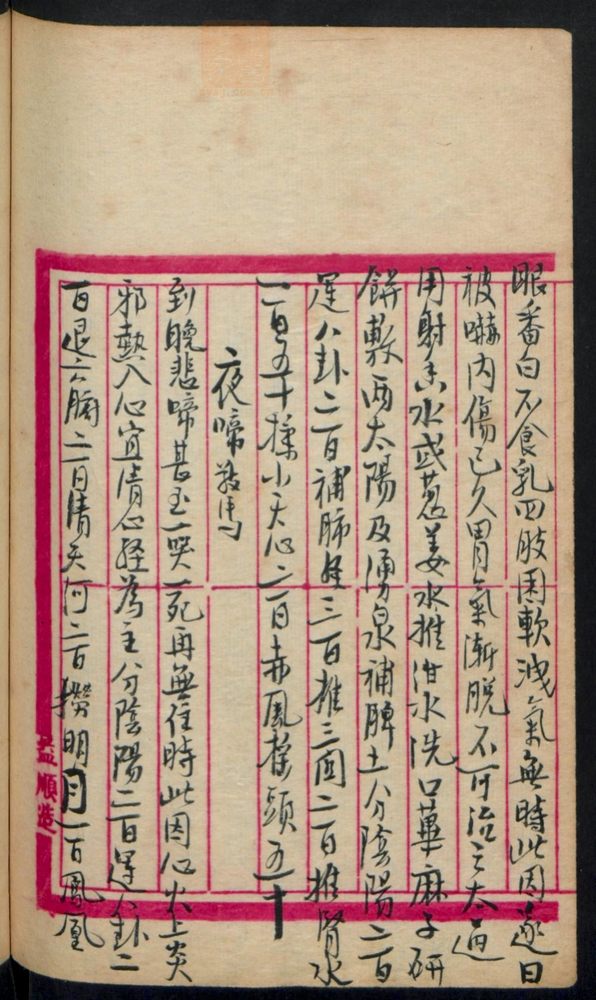 眼番白不食乳四肢困軟洩氣無時此因逐日
被嚇內傷已久胃氣漸脫不可治之太過
用射香水或葱姜水推泔水洗口萆麻子研
餅敷兩太陽及湧泉補脾土分陰陽二百
運八卦二百補肺經三百推三関二百推腎水
一百五十揉小天心二百赤鳳搖頭五十
夜啼驚
到晚悲啼甚至一哭一死再無住時此因心火上炎
邪熱入心宜清心經為主分陰陽二百運八卦二
百退六腑二百清天河二百撈明月一百鳳凰
益順造